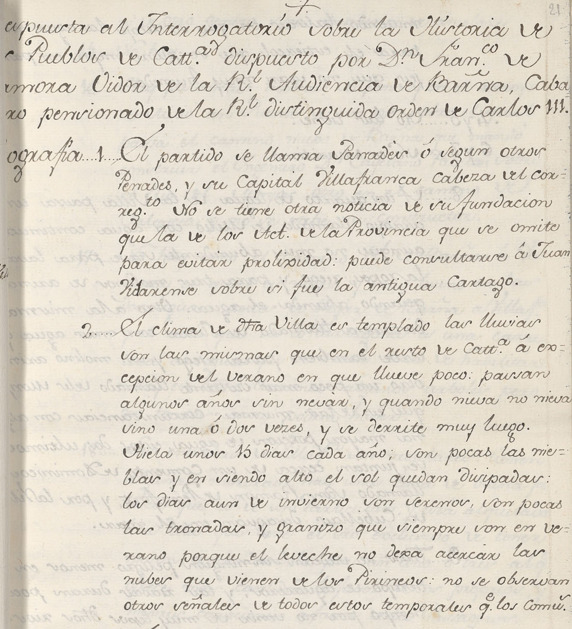 21
espuesta al Interrogatorio sobre la Historia de
s Pueblos de Catt.ad dispuesto por D.n Fran.co de
amora Oidor de la R.l Audiencia de Barña, Caba
ro pensionado de la R.l distinguida orden de Carlos III.
ografia....1....El partido se llama Panadès ó segun otros
Penades, y su Capital Villafranca Cabeza del cor-
reg.to No se tiene otra noticia de su fundacion
que la de los Act. de la Provincia que se omite
para evitar prolixidad: puede consultarse à Juan
sobre si fue la antigua Cartago.
2.....El clima de dha Villa es templado las lluvias
son las mismas que en el resto de Catt.a á ex-
cepcion del verano en que llueve poco: pasan
algunos años sin nevar, y quando nieva no nieva
sino una ó dos vezes, y se derrite muy luego.
Yiela unos 15 dias cada año; son pocas las nie-
blas y en siendo alto el sol quedan disipadas:
los dias aun de invierno son serenos, son pocas
las tronadas, y granizo que siempre son en ve-
rano porque el leveche no dexa acercar las
nubes que vienen de los Pirineos: no se observan
otros señales de todos estos temporales q.e los comũs.